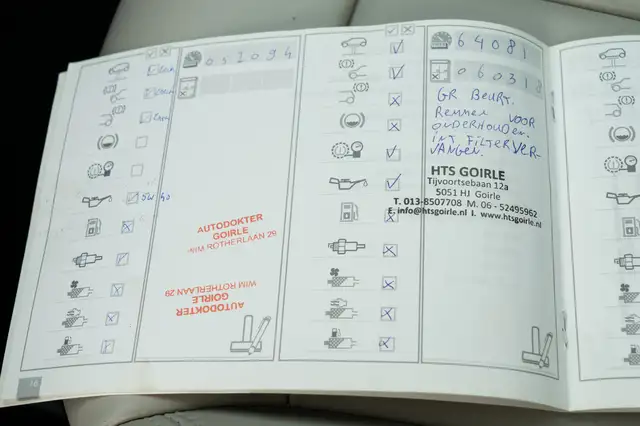 052094
5W40
AUTODOKTER
GOIRLE
WIM ROTHERLAAN 29
WIM ROTHERLAAN 29
GOIRLE
AUTODOKTER
64081
060318
GR BEURT.
REMMEN VOOR
ONDERHOUDEN.
INT FILTER VER-
VANGEN.
HTS GOIRLE
Tijvoortsebaan 12a
5051 HJ Goirle
T. 013-8507708 M. 06 - 52495962
E. info@htsgoirle.nl I. www.htsgoirle.nl